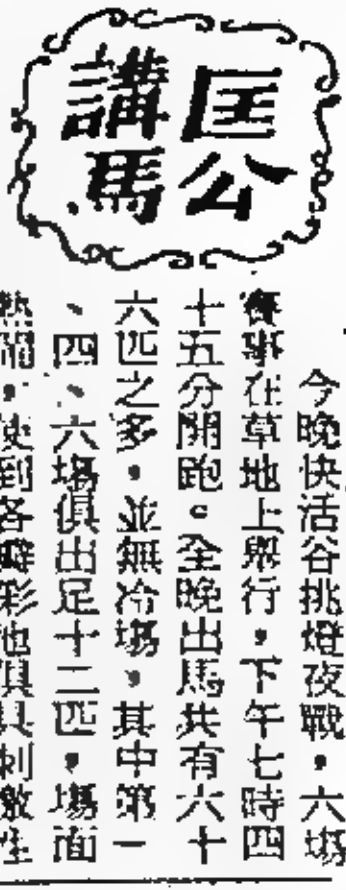 匡公
講馬
今晚快活谷挑燈夜戰，六場
賽事在草地上舉行，下午七時四
十五分開跑。全晚出馬共有六十
六匹之多，並無冷場，其中第一
、四、六場俱出足十二匹，場面
熱鬧，使到各種彩池俱具刺激性